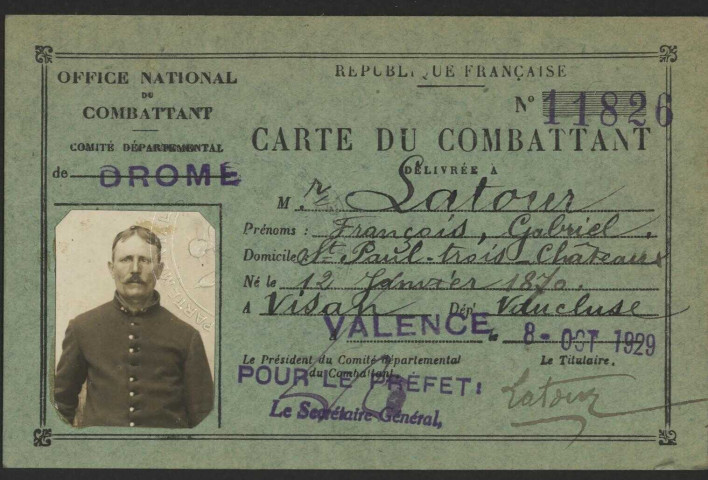 OFFICE NATIONAL
DU
COMBATTANT
COMITÉ DÉPARTEMENTAL
de DROME
RÉPUBLIQUE FRANÇAISE
N° 11826
CARTE DU COMBATTANT
DÉLIVRÉE A
M r Latour
Prénoms : François, Gabriel.
Domicile St Paul-trois-Châteaux
Né le 12 Janvier 1870.
A Visan Dép^t Vaucluse
A VALENCE, le 8 - OCT 1929
Le Président du Comité départemental
du Combattant
Le Titulaire,
POUR LE PRÉFET:
Le Secrétaire Général,
Latour